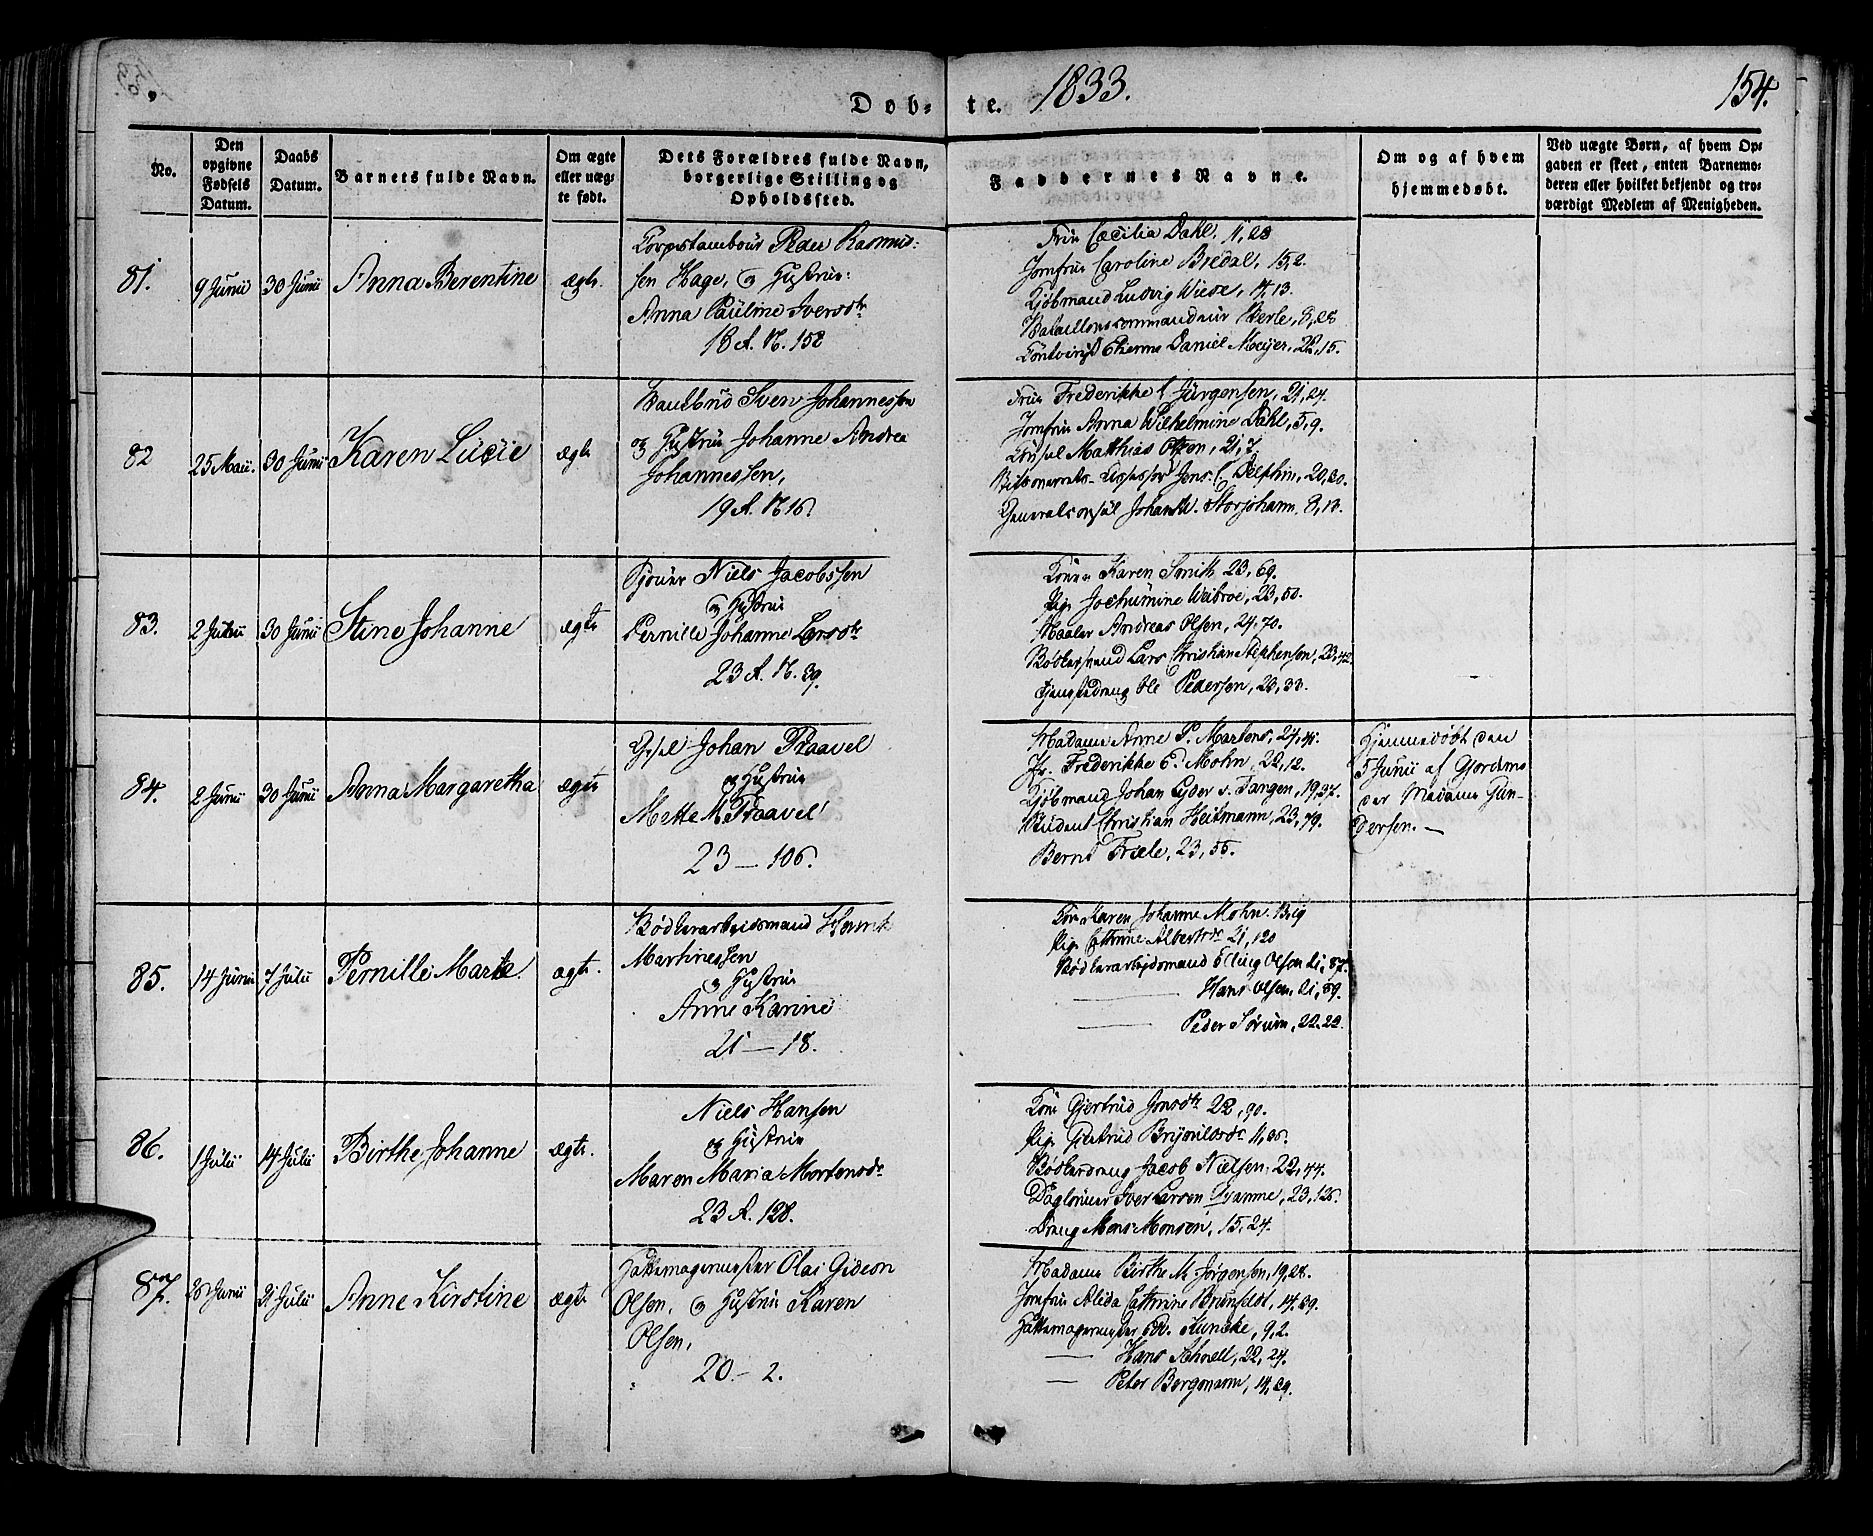 Døb-te. 1833. 154.
No.
Den opgivne Fødsels Datum.
Daabs Datum.
Barnets fulde Navn.
Om ægte eller uægte født.
Dets Forældres fulde Navn, borgerlige Stilling og Opholdssted.
Faddernes Navne.
Om og af hvem hjemmedøbt.
Ved uægte Børn, af hvem Opgaven er skeet, enten Barnemoderen eller hvilket bekjendt og troværdigt Medlem af Menigheden.
81. 9 Junii 30 Junii Anna Berentine ægte.
Corpstambour Peder Rasmus-
sen Hage, og Hustrue:
Anna Pauline Iversdtr
18 A. N. 158
Frue Cæcilia Dahl, 11,28
Jomfrue Caroline Bredal, 15,2.
Kjøbmand Ludvig Wiese, 14,13.
Bataillonscommandeur 8,28
Daniel Meijer, 22,15.
82 25 Maii. 30 Junii Karen Lucie ægte
Sven Johannessen
og Hustrue Johanne Andrea
Johannessen,
19 A. N 16.
Frue Frederikke C Jürgensen, 21,24.
Jomfrue Anna Wilhelmine Dahl, 5,9.
Consul Matthias 21,7.
Assessor Jens C. Delphin, 20,20.
Generalconsul Johan W. Storjohann, 8,13.
83. 2 Junii 30 Junii Stine Johanne ægte
Niels Jacobssen
og Hustrue
Pernille Johanne Larsdtr
23 A. N. 39.
Kone Karen Smith 23,69.
Pige Jochumine Weibroe, 23,50.
Maaler Andreas Olsen, 24,70.
Lars Christian Stephensen, 23,42.
Tjenestedreng Ole Pedersen, 23,33.
84. 2 Junii 30 Junii Anna Margaretha ægte
Johan Praavel
og Hustrue
Mette M. Praavel
23 — 106.
Madame Anne P. Martens, 24,
Jfr. Frederikke C. Mohn, 22,12.
Kjøbmand Johan Eyder v. Tangen, 19,37.
Student Christian Heitmann, 23,79.
Bernt Friele, 23,55.
Hjemmedøbt den
5 Junii af Gjordmo
der Madame Gun-
dersen. —
85. 14 Junii 7 Julii Pernille Marte ægte.
Bødkerarbeidsmand Henrik
Martinessen
og Hustrue
Anne Karine
21 — 18.
Kone Karen Johanne Mohn. 13,19
Pige Cathrine Albertsdr 21,120
Bødkerarbejdsmand Elling Olsen 21,87.
— Hans Olsen, 21,89.
— Peder Sørum, 22,22.
86. 1 Julii 14 Julii Birthe Johanne ægte.
Niels Hansen
og Hustrue
Maren Maria Mortensdr
23 A. 128.
Kone Gjertrud Jonsdtr 22,90.
Pige Giertrud Brynildsdr 11,
Bødkerdreng Jacob Nielsen, 22,44.
Daglønner Iver Larsen 23,126.
Dreng Mons Monsen, 15,24.
87. 28 Junii 21 Julii Anne Kirstine ægte
Hattemagermester Olai Gideon
Olsen, og Hustrue Karen
Olsen,
20 — 2.
Madame Birthe M. Jørgensen, 19,28.
Jomfrue Alida Cathrine 14,89.
Hattemagermester Kuncke, 9,2.
— Hans Schnell, 22,24.
— Peter Bergmann, 14,89.